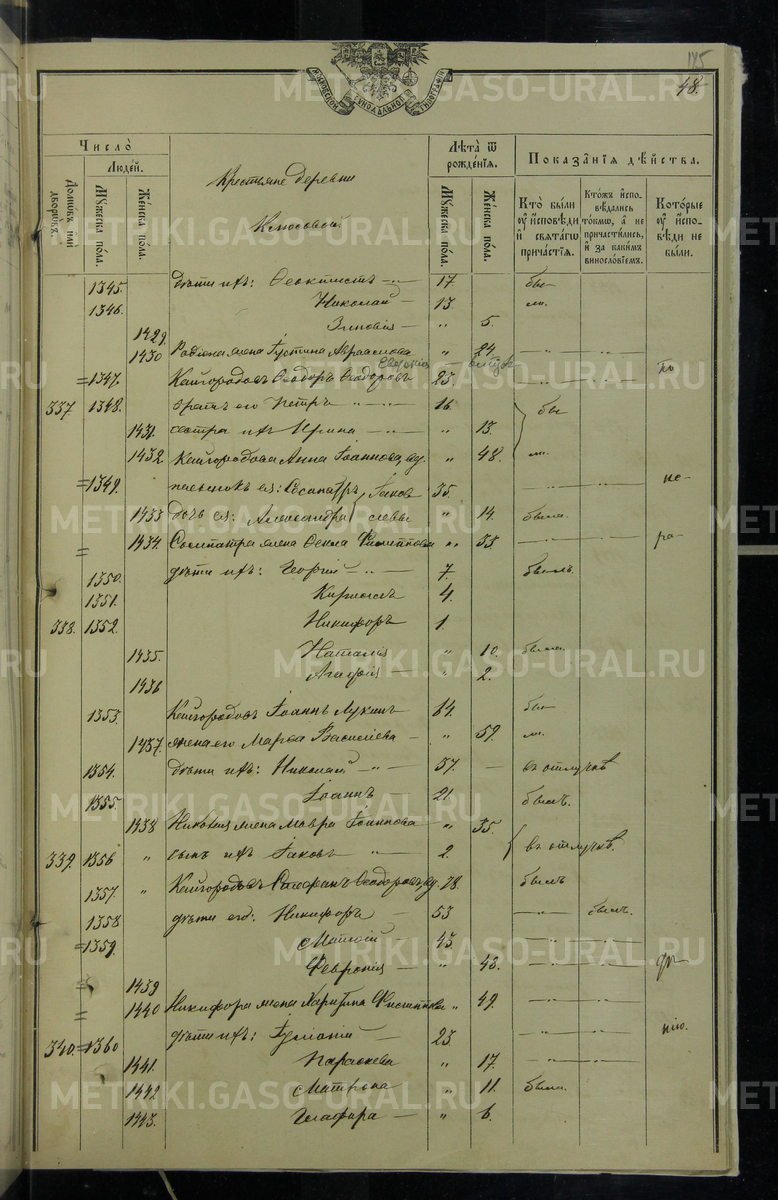 145
48.
МОСКОВСКОЙ СѴНОДАЛЬНОЙ ТИПОГРАФІИ
Число̀
Людей.
Домѡвъ или дворѡвъ.
Мꙋжеска по́ла.
Же́нска по́ла.
Крестьяне деревни
Клюсовой.
Лѣ́та ѿ рожде́нїѧ.
Мꙋжеска по́ла.
Же́нска по́ла.
Показа̑нїѧ дѣ́йства.
Кто̀ бы́ли ᲂу҆ и҆сповѣди и҆ свѧта́гѡ прича́стїѧ.
Кто́жъ и҆спо-вѣдались то́кмѡ, а҆ не причасти́лись, и҆ за каки́мъ винословїемъ.
Кото́рые ᲂу҆ и҆спо-вѣди не бы́ли.
1345. дѣти ихъ: Феоктистъ — 17. бы-
1346. Николай — 13. ли.
1429. Зиновія — " 5.
1430 жена Іустина " 24.
=1347. Кайгородовъ Ѳеодоръ Ѳеодоровъ 23 — " — " — по
337 1348. братъ его Петръ 16. бы
1431. сестра ихъ Ирина — " 13.
1432. Кайгородова Анна Іоаннова, вд. " 48. ли.
=1349. пасынокъ ея: Сосипатръ Іаков 35. — " — " — не-
1433 дочь ея: Александра левы " 14. была.
= 1434. Сосипатра жена Ѳекла Филиппова " 33 — " — ра-
1350. дѣти ихъ: Георгій — " — 7. былъ.
1351. Кириллъ 4.
338. 1352. Никифоръ 1.
1435. Наталія " 10. была.
1436 Агафія — " 2.
1353. Кайгородовъ Іоаннъ Лукинъ 84. бы-
1437. жена его Марѳа Васильева — " 59. ли.
1354. дѣти ихъ: Николай — " — 37. — въ отлучкѣ
1355. Іоаннъ — 21 былъ.
1438 Николая жена Мавра Іоаннова " 35.
339. 1356 " сынъ ихъ Іаковъ " — 2. въ отлучкѣ.
1357. " Кайгородовъ Стефанъ Ѳеодоровъ, вд. 78. былъ
1358 дѣти его: Никифоръ — 53 — " — былъ.
=1359. Матѳій 43. — " — " —
= 1439 Феврония — " 43. — " — " — дѣ-
= 1440 Никифора жена Харитина Филиппова " 49. — " — " —
340. =1360 дѣти ихъ: Іуліаній — 23 — " — нію.
1441. Параскева " 17. — " — " —
1442. Матрона " 11. была.
1443. Гликафира — " 6.
METRIKI.GASO-URAL.RU